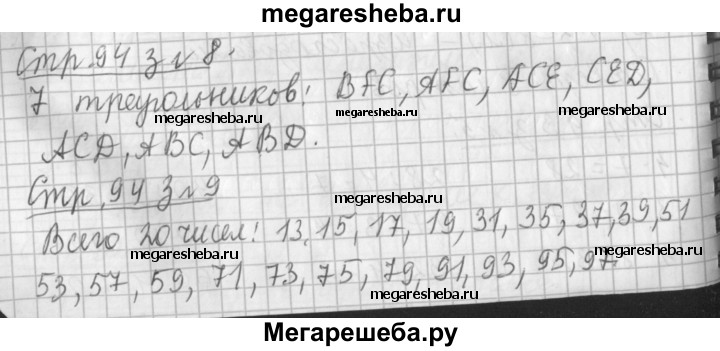 megaresheba.ru
Стр. 94 З № 8.
7 треугольников: BFC, AFC, ACE, CED,
megaresheba.ru
megaresheba.ru
megaresheba.ru
ACD, ABC, ABD.
Стр. 94 З № 9
megaresheba.ru
Всего 20 чисел: 13, 15, 17, 19, 31, 35, 37, 39, 51
megaresheba.ru
megaresheba.ru
53, 57, 59, 71, 73, 75, 79, 91, 93, 95, 97.
megaresheba.ru
Мегарешеба.ру